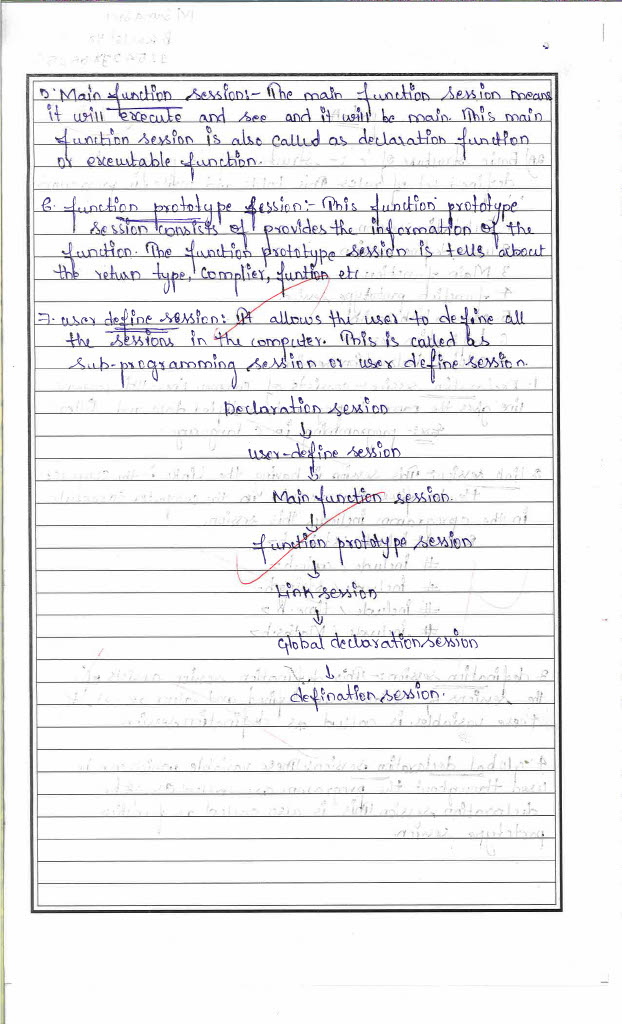 5. Main function session:- The main function session means
it will execute and see and it will be main. This main
function session is also called as declaration function
or exewtable function.
6. function prototype session:- This function prototype
session consists of provides the information of the
function. The function prototype session is tells about
the return type, complier, funtion etc
7. user define session: It allows the user to define all
the sessions in the computer. This is called as
sub-programming session or user define session.
Declaration session
↓
user-define session
↓
Main function session.
↓
function prototype session
↓
Link session
↓
Global declaration session
↓
defination session.